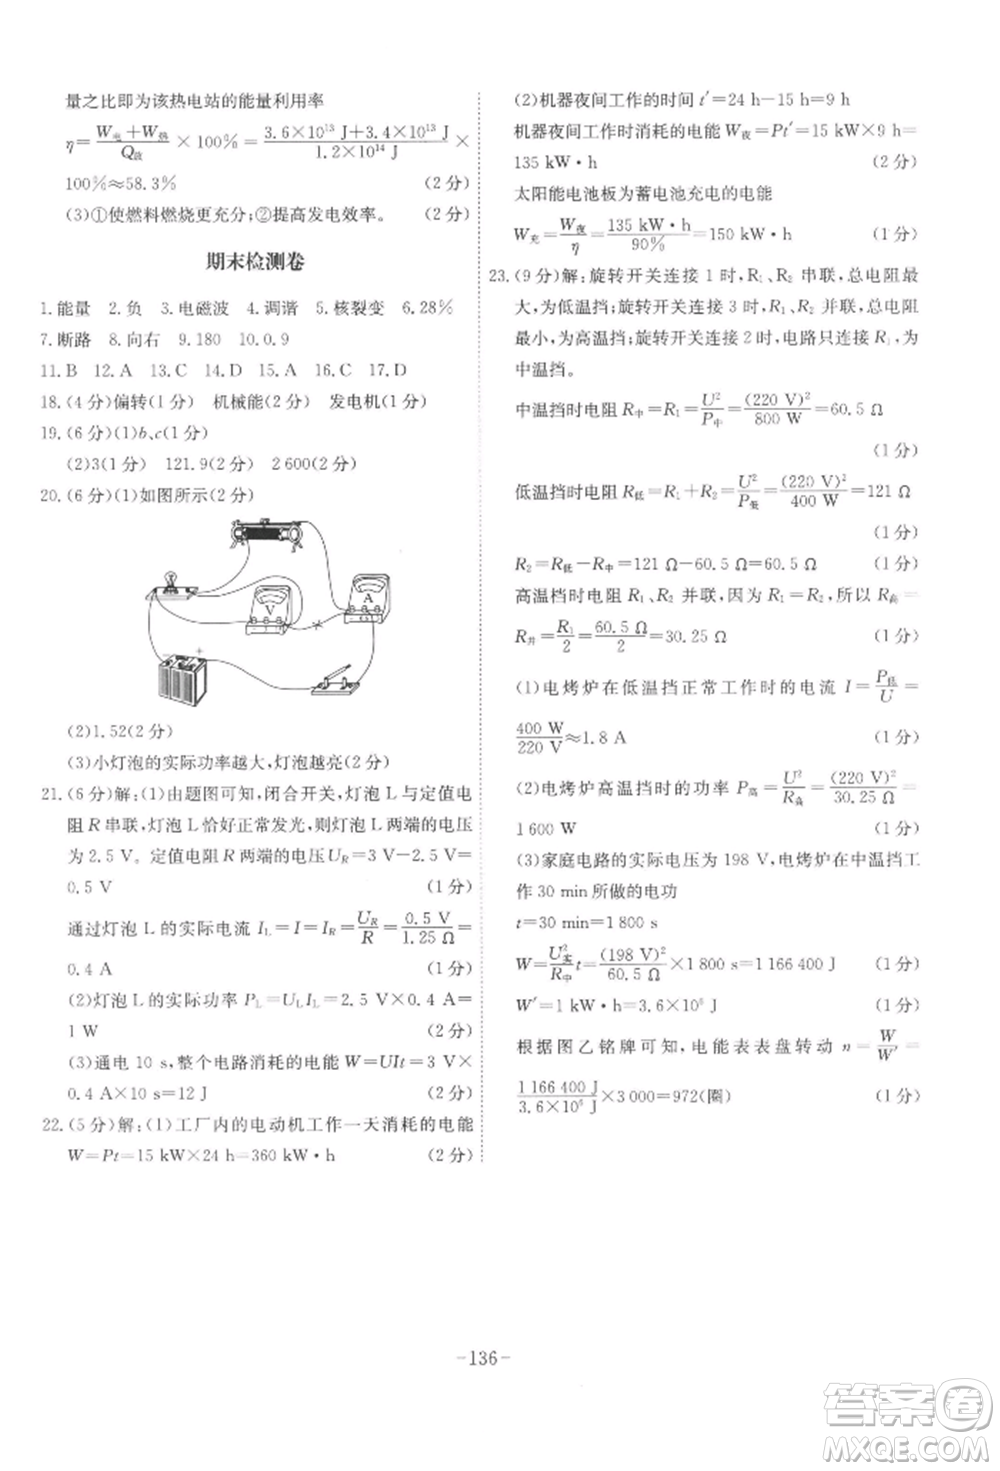 量之比即为该热电站的能量利用率
η=(W电+W热)/Q放×100%=(3.6×10¹³ J+3.4×10¹³ J)/(1.2×10¹⁴ J)×
100%≈58.3%(2分)
(3)①使燃料燃烧更充分;②提高发电效率。(2分)
期末检测卷
1.能量 2.负 3.电磁波 4.调谐 5.核裂变 6.28%
7.断路 8.向右 9.180 10.0.9
11.B 12.A 13.C 14.D 15.A 16.C 17.D
18.(4分)偏转(1分) 机械能(2分) 发电机(1分)
19.(6分)(1)b、c(1分)
(2)3(1分) 121.9(2分) 2 600(1分)
20.(6分)(1)如图所示(2分)
V
A
- +
(2)1.52(2分)
(3)小灯泡的实际功率越大,灯泡越亮(2分)
21.(6分)解:(1)由题图可知,闭合开关,灯泡 L 与定值电
阻 R 串联,灯泡 L 恰好正常发光,则灯泡 L 两端的电压
为 2.5 V。定值电阻 R 两端的电压 U_R=3 V-2.5 V=
0.5 V(1分)
通过灯泡 L 的实际电流 I_L=I=I_R=U_R/R=0.5 V/1.25 Ω=
0.4 A(1分)
(2)灯泡 L 的实际功率 P_L=U_L I_L=2.5 V×0.4 A=
1 W(2分)
(3)通电 10 s,整个电路消耗的电能 W=UIt=3 V×
0.4 A×10 s=12 J(2分)
22.(5分)解:(1)工厂内的电动机工作一天消耗的电能
W=Pt=15 kW×24 h=360 kW·h(2分)
(2)机器夜间工作的时间 t′=24 h-15 h=9 h
机器夜间工作时消耗的电能 W夜=Pt′=15 kW×9 h=
135 kW·h(2分)
太阳能电池板为蓄电池充电的电能
W充=W夜/η=135 kW·h/90%=150 kW·h(1分)
23.(9分)解:旋转开关连接 1 时,R₁、R₂ 串联,总电阻最
大,为低温挡;旋转开关连接 3 时,R₁、R₂ 并联,总电阻
最小,为高温挡;旋转开关连接 2 时,电路只连接 R₁,为
中温挡。
中温挡时电阻 R中=R₁=U²/P中=(220 V)²/800 W=60.5 Ω
(1分)
低温挡时电阻 R低=R₁+R₂=U²/P低=(220 V)²/400 W=121 Ω
(1分)
R₂=R低-R中=121 Ω-60.5 Ω=60.5 Ω(1分)
高温档时电阻 R₁、R₂ 并联,因为 R₁=R₂,所以 R高=
R并=R₁/2=60.5 Ω/2=30.25 Ω(1分)
(1)电烤炉在低温挡正常工作时的电流 I=P低/U=
400 W/220 V≈1.8 A(1分)
(2)电烤炉高温挡时的功率 P高=U²/R高=(220 V)²/30.25 Ω=
1 600 W(1分)
(3)家庭电路的实际电压为 198 V,电烤炉在中温挡工
作 30 min 所做的电功
t=30 min=1 800 s
W=U实²/R中 t=(198 V)²/60.5 Ω×1 800 s=1 166 400 J(1分)
W′=1 kW·h=3.6×10⁶ J(1分)
根据图乙铭牌可知,电能表表盘转动 n=W/W′=
1 166 400 J/3.6×10⁶ J×3 000=972(圈)(1分)
-136-
答案卷
MXQE.COM